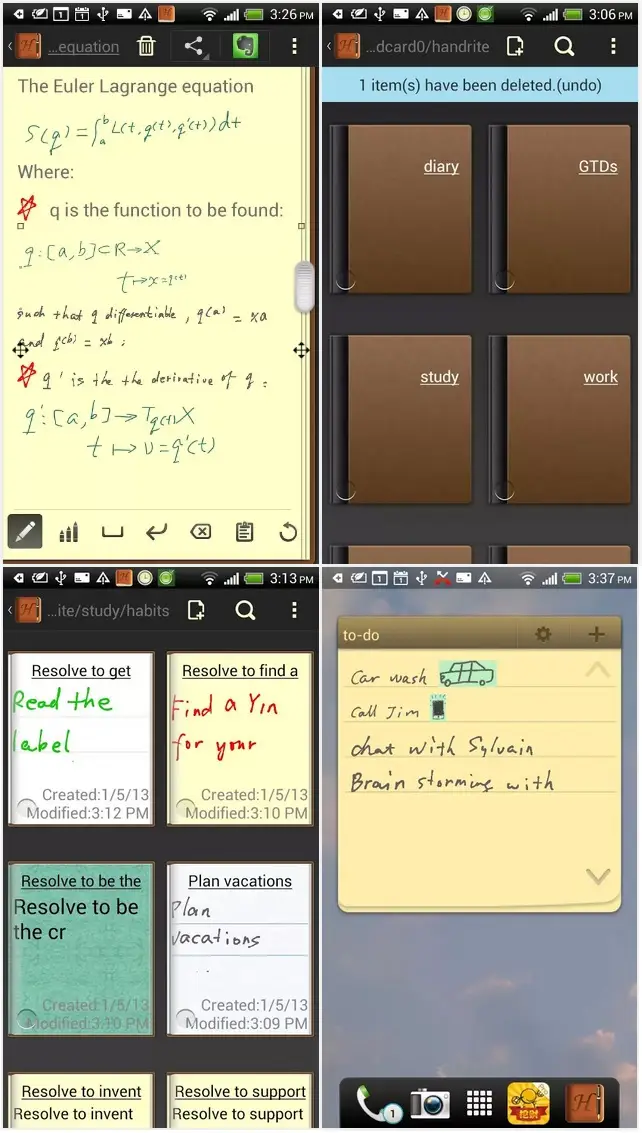 3:26 PM
...equation
The Euler Lagrange equation
S(q) = ∫ₐᵇ L(t, q(t), q'(t)) dt
Where:
q is the function to be found:
q : [a, b] ⊂ R → X
t ↦ x = q(t)
such that q differentiable, q(a) = xa
and q(b) = xb ;
q' is the the derivative of q :
q' : [a, b] → Tq(t)X
t ↦ v = q'(t)
3:06 PM
...dcard0/handrite
1 item(s) have been deleted.(undo)
diary
GTDs
study
work
3:13 PM
...ite/study/habits
Resolve to get
Read the
label
Created:1/5/13
Modified:3:12 PM
Resolve to find a
Find a Yin
for your
Created:1/5/13
Modified:3:10 PM
Resolve to be the
Resolve to be
the cr
Created:1/5/13
Modified:3:10 PM
Plan vacations
Plan
vacations
Created:1/5/13
Modified:3:09 PM
Resolve to invent
Resolve to invent
Resolve to support
Resolve to support
3:37 PM
to-do
Car wash
Call Jim
chat with Sylvain
Brain storming with
1